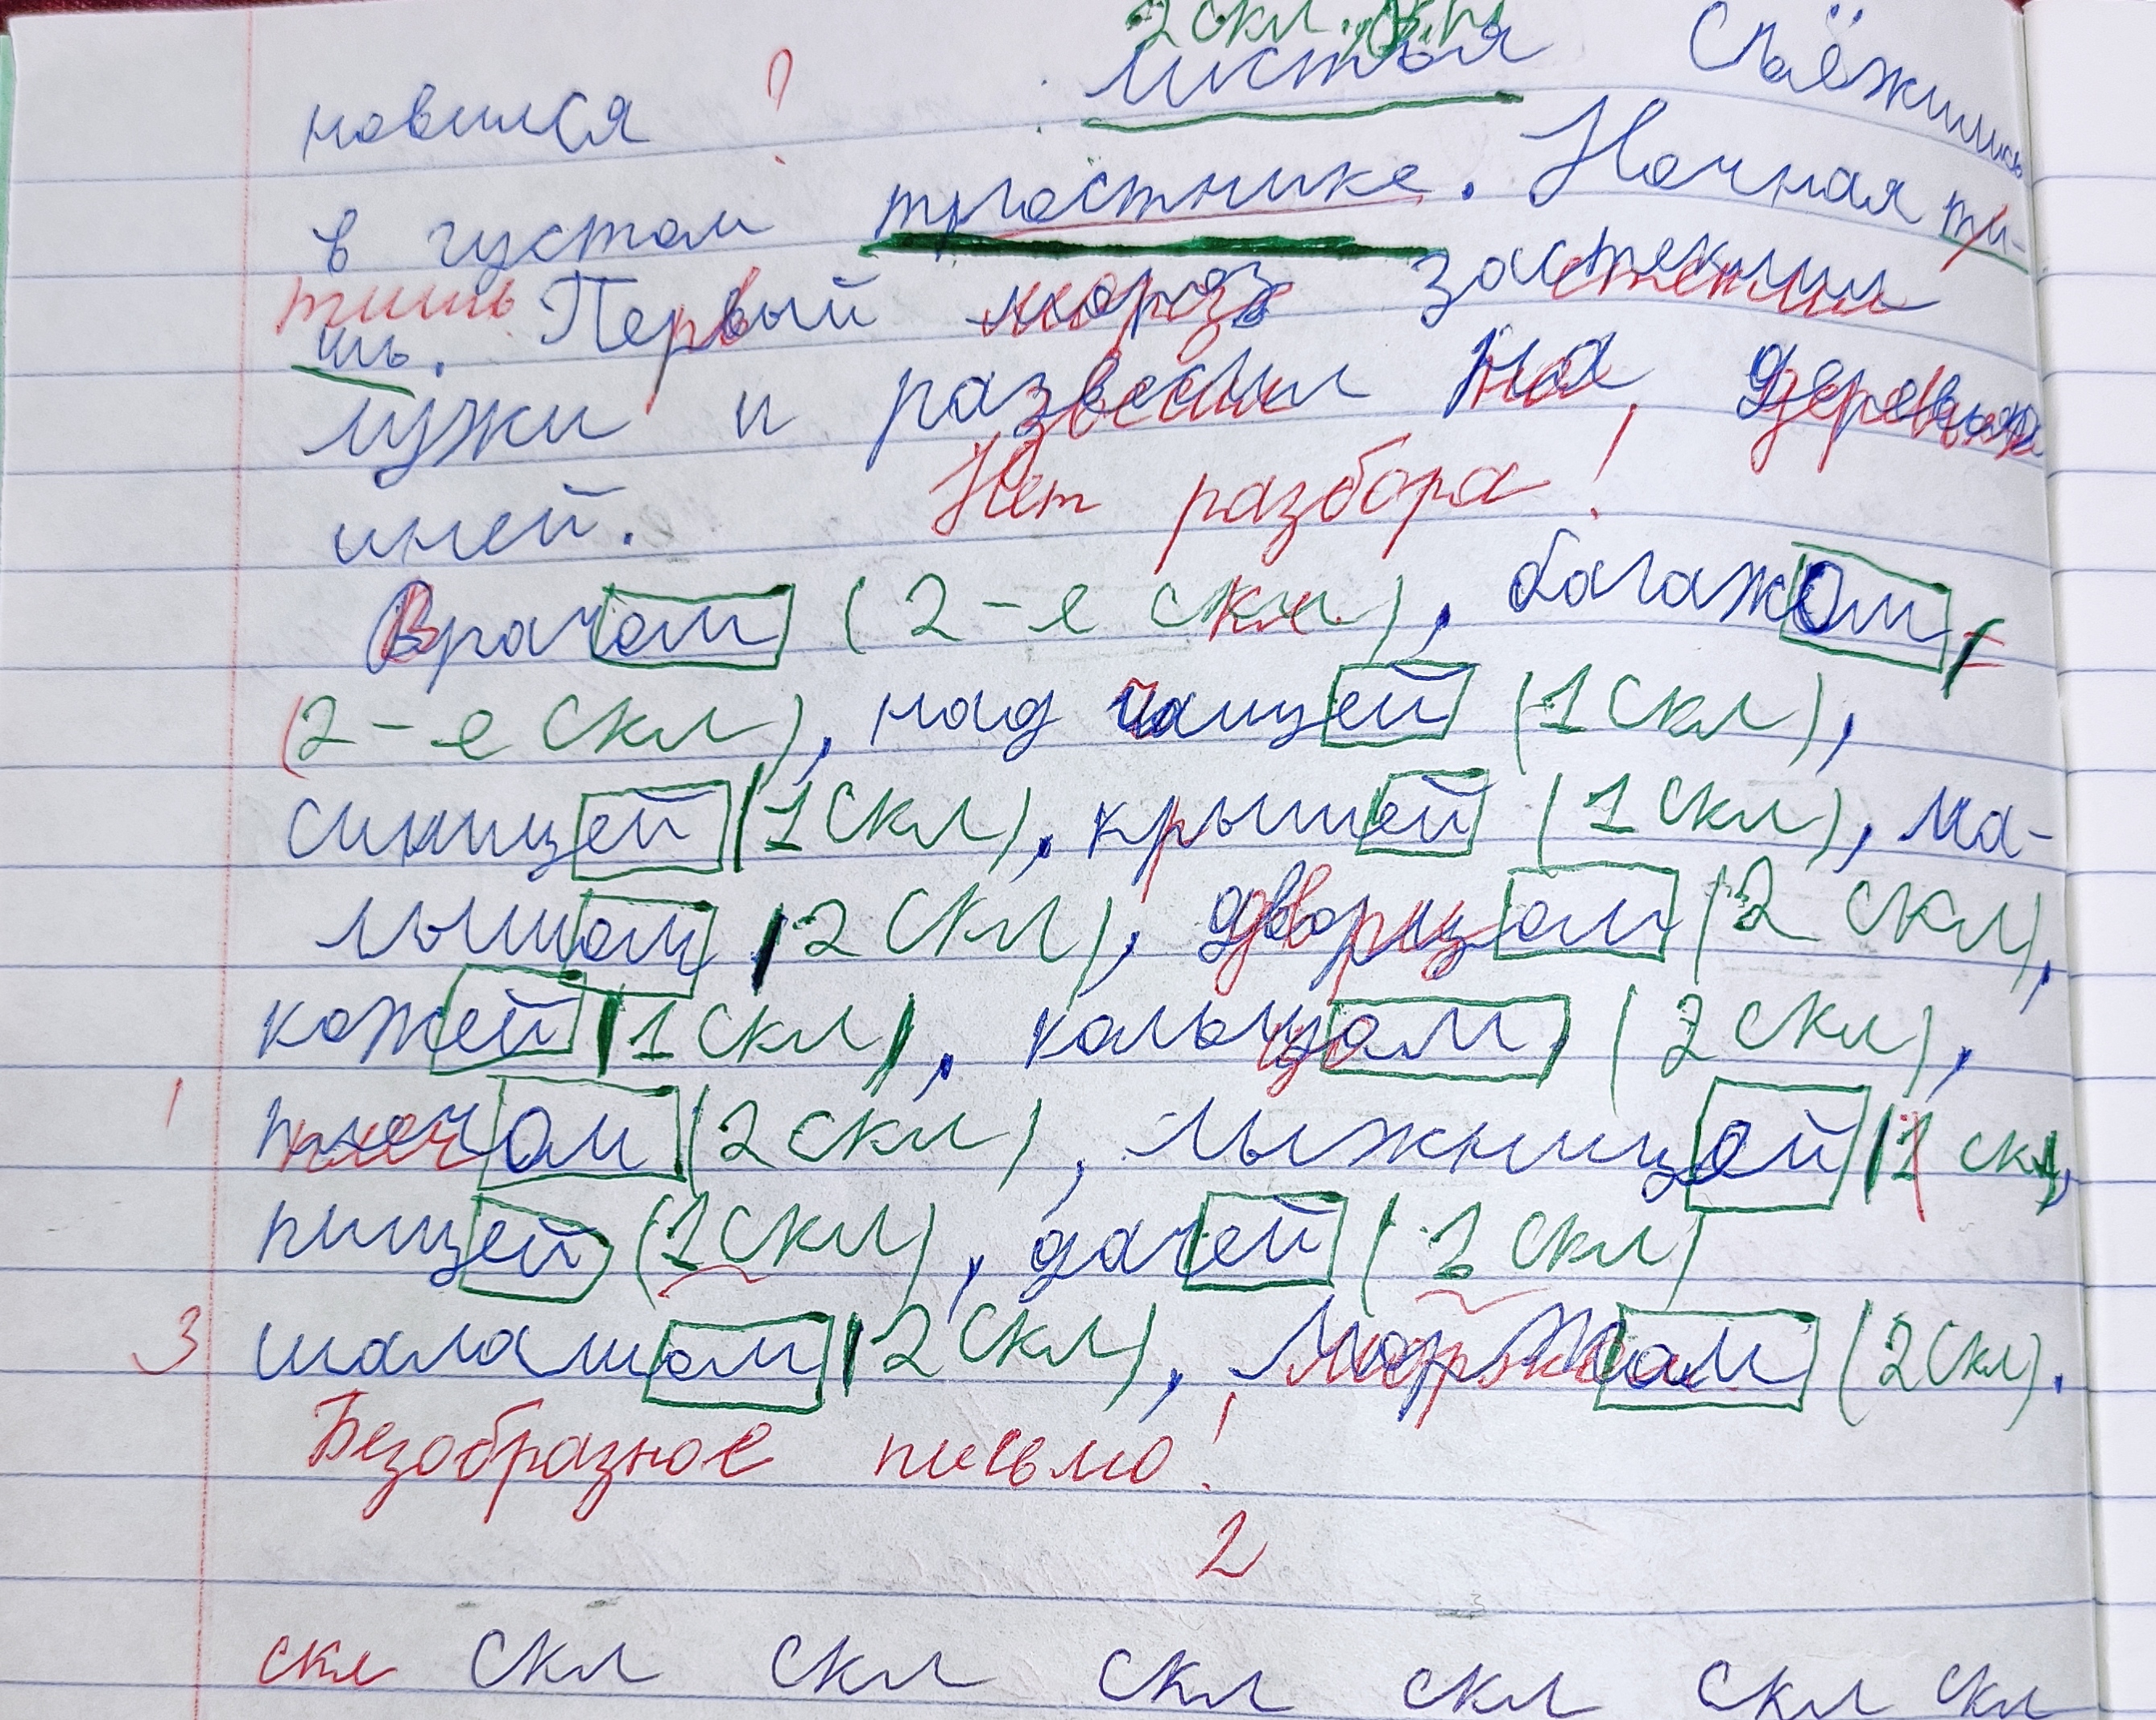 2 скл.,
новился ? листья съёжились
в густом тростнике. Ночная ти-
тишь
шь. Первый мороз застеклил
лужи и развесил на деревьях
иней. Нет разбора!
Врачом (2-е скл.), багажом,
(2-е скл), над чащей (1 скл),
синицей (1 скл), крышей (1 скл), ма-
лышом (2 скл), дворцом (2 скл),
кожей (1 скл), кольцом (2 скл),
1 плечом (2 скл), лыжницей (1 скл),
пищей (1 скл), дачей (1 скл)
3 шалашом (2 скл), моржом (2 скл).
Безобразное письмо!
2
скл скл скл скл скл скл скл